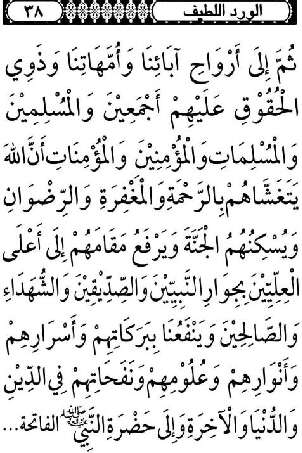 الورد اللطيف ٣٨
ثُمَّ إِلَى أَرْوَاحِ آبَائِنَا وَأُمَّهَاتِنَا وَذَوِي
الْحُقُوْقِ عَلَيْهِمْ أَجْمَعِيْنَ وَالْمُسْلِمِيْنَ
وَالْمُسْلِمَاتِ وَالْمُؤْمِنِيْنَ وَالْمُؤْمِنَاتِ أَنَّ اللهَ
يَتَغَشَّاهُمْ بِالرَّحْمَةِ وَالْمَغْفِرَةِ وَالرِّضْوَانِ
وَيُسْكِنُهُمُ الْجَنَّةَ وَيَرْفَعُ مَقَامَهُمْ إِلَى أَعْلَى
الْعِلِيِّيْنَ بِجِوَارِ النَّبِيِّيْنَ وَالصِّدِّيْقِيْنَ وَالشُّهَدَاءِ
وَالصَّالِحِيْنَ وَيَنْفَعُنَا بِبَرَكَاتِهِمْ وَأَسْرَارِهِمْ
وَأَنْوَارِهِمْ وَعُلُوْمِهِمْ وَنَفَحَاتِهِمْ فِي الدِّيْنِ
وَالدُّنْيَا وَالْآخِرَةِ وَإِلَى حَضْرَةِ النَّبِيِّ ﷺ الفاتحة...